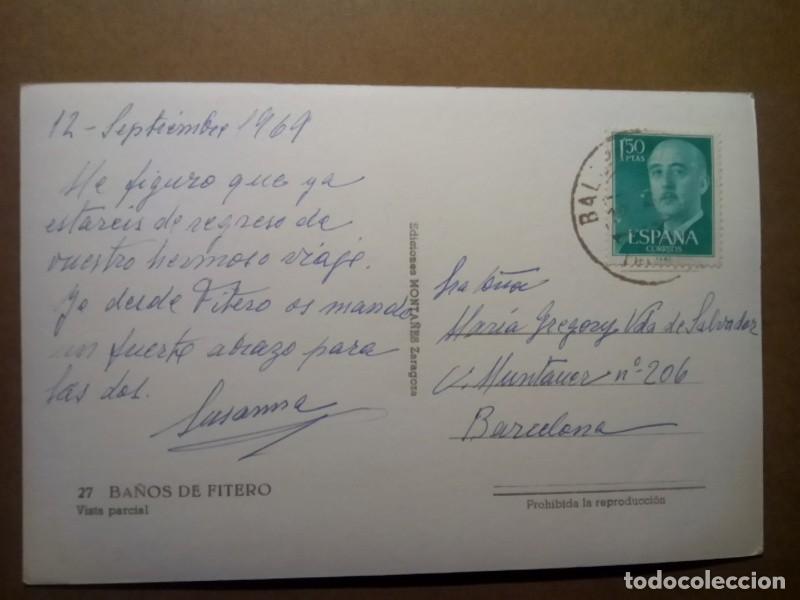 12 - Septiembre 1969
Me figuro que ya
estareis de regreso de
vuestro hermoso viaje.
Yo desde Fitero os mando
un fuerte abrazo para
las dos.
Susanna
27 BAÑOS DE FITERO
Vista parcial
Ediciones MONTAÑES Zaragoza
1'50
PTAS
ESPAÑA
CORREOS
BAL
Sra Dña
María Gregory Vda de Salvador
C. Muntaner nº 206
Barcelona
Prohibida la reproducción
todocoleccion
todocoleccion.net